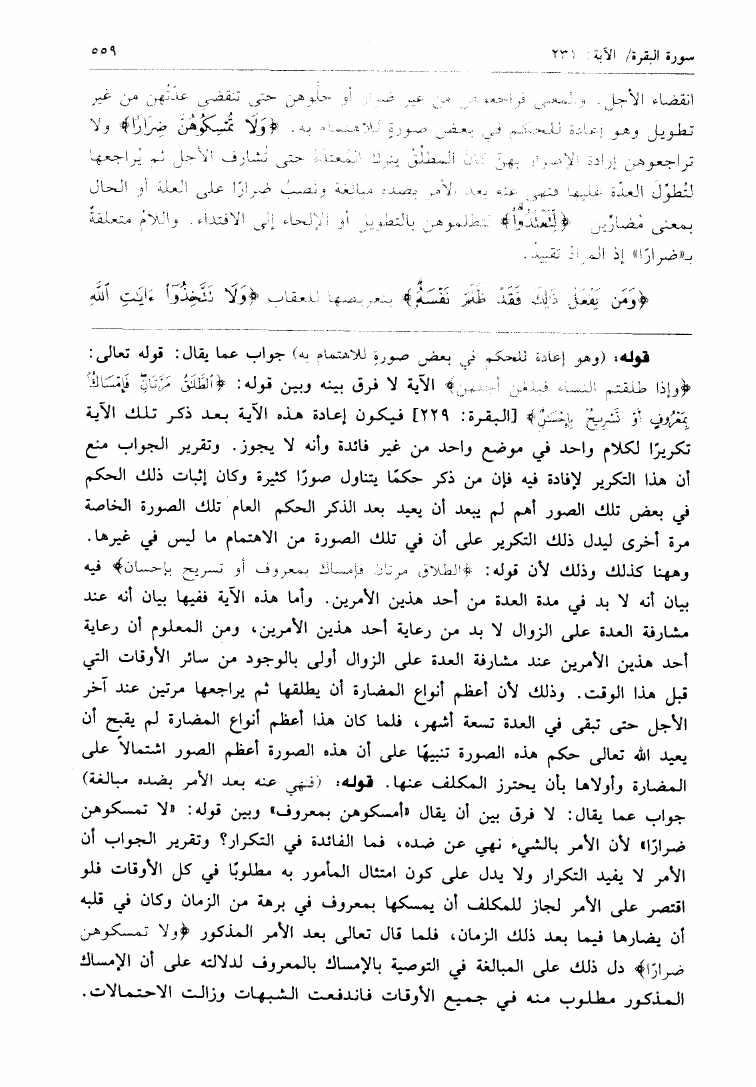 سورة البقرة/ الآية: ٢٣١
٥٥٩
انقضاء الأجل. والمعنى فراجعوهن من غير ضرار أو خلّوهن حتى تنقضي عدّتُهن من غير
تطويل وهو إعادة للحكم في بعض صورةٍ للاهتمام به. ﴿وَلَا تُمْسِكُوهُنَّ ضِرَارًا﴾ ولا
تراجعوهن إرادة الإضرار بهنّ كان المطلّقُ يترك المُعتدّة حتى تُشارف الأجل ثم يُراجعها
لتُطوّلَ العدّة عليها فنُهي عنه بعد الأمر بضده مبالغة ونصبُ ضرارًا على العلة أو الحال
بمعنى مُضارّين ﴿لِتَعْتَدُوا﴾ لتظلموهن بالتطويل أو الإلجاء إلى الافتداء. واللامُ متعلقةٌ
بـ«ضرارًا» إذ المرادُ تقييدُ.
﴿وَمَن يَفْعَلْ ذَلِكَ فَقَدْ ظَلَمَ نَفْسَهُ﴾ بتعريضها للعقاب ﴿وَلَا تَتَّخِذُوٓا۟ ءَايَٰتِ ٱللَّهِ
قوله: (وهو إعادة للحكم في بعض صورةٍ للاهتمام به) جواب عما يقال: قوله تعالى:
﴿وإذا طلقتم النساء فبلغن أجلهن﴾ الآية لا فرق بينه وبين قوله: ﴿ٱلطَّلَٰقُ مَرَّتَانِ فَإِمْسَاكٌ
بِمَعْرُوفٍ أَوْ تَسْرِيحٌ بِإِحْسَٰنٍ﴾ [البقرة: ٢٢٩] فيكون إعادة هذه الآية بعد ذكر تلك الآية
تكريرًا لكلام واحد في موضع واحد من غير فائدة وأنه لا يجوز. وتقرير الجواب منع
أن هذا التكرير لإفادة فيه فإن من ذكر حكمًا يتناول صورًا كثيرة وكان إثبات ذلك الحكم
في بعض تلك الصور أهم لم يبعد أن يعيد بعد الذكر الحكم العام تلك الصورة الخاصة
مرة أخرى ليدل ذلك التكرير على أن في تلك الصورة من الاهتمام ما ليس في غيرها.
وههنا كذلك وذلك لأن قوله: ﴿الطلاق مرتان فإمساك بمعروف أو تسريح بإحسان﴾ فيه
بيان أنه لا بد في مدة العدة من أحد هذين الأمرين. وأما هذه الآية ففيها بيان أنه عند
مشارفة العدة على الزوال لا بد من رعاية أحد هذين الأمرين، ومن المعلوم أن رعاية
أحد هذين الأمرين عند مشارفة العدة على الزوال أولى بالوجود من سائر الأوقات التي
قبل هذا الوقت. وذلك لأن أعظم أنواع المضارة أن يطلقها ثم يراجعها مرتين عند آخر
الأجل حتى تبقى في العدة تسعة أشهر، فلما كان هذا أعظم أنواع المضارة لم يقبح أن
يعيد الله تعالى حكم هذه الصورة تنبيهًا على أن هذه الصورة أعظم الصور اشتمالاً على
المضارة وأولاها بأن يحترز المكلف عنها. قوله: (فنهي عنه بعد الأمر بضده مبالغة)
جواب عما يقال: لا فرق بين أن يقال «أمسكوهن بمعروف» وبين قوله: «لا تمسكوهن
ضرارًا» لأن الأمر بالشيء نهي عن ضده، فما الفائدة في التكرار؟ وتقرير الجواب أن
الأمر لا يفيد التكرار ولا يدل على كون امتثال المأمور به مطلوبًا في كل الأوقات فلو
اقتصر على الأمر لجاز للمكلف أن يمسكها بمعروف في برهة من الزمان وكان في قلبه
أن يضارها فيما بعد ذلك الزمان، فلما قال تعالى بعد الأمر المذكور ﴿ولا تمسكوهن
ضرارًا﴾ دل ذلك على المبالغة في التوصية بالإمساك بالمعروف لدلالته على أن الإمساك
المذكور مطلوب منه في جميع الأوقات فاندفعت الشبهات وزالت الاحتمالات.